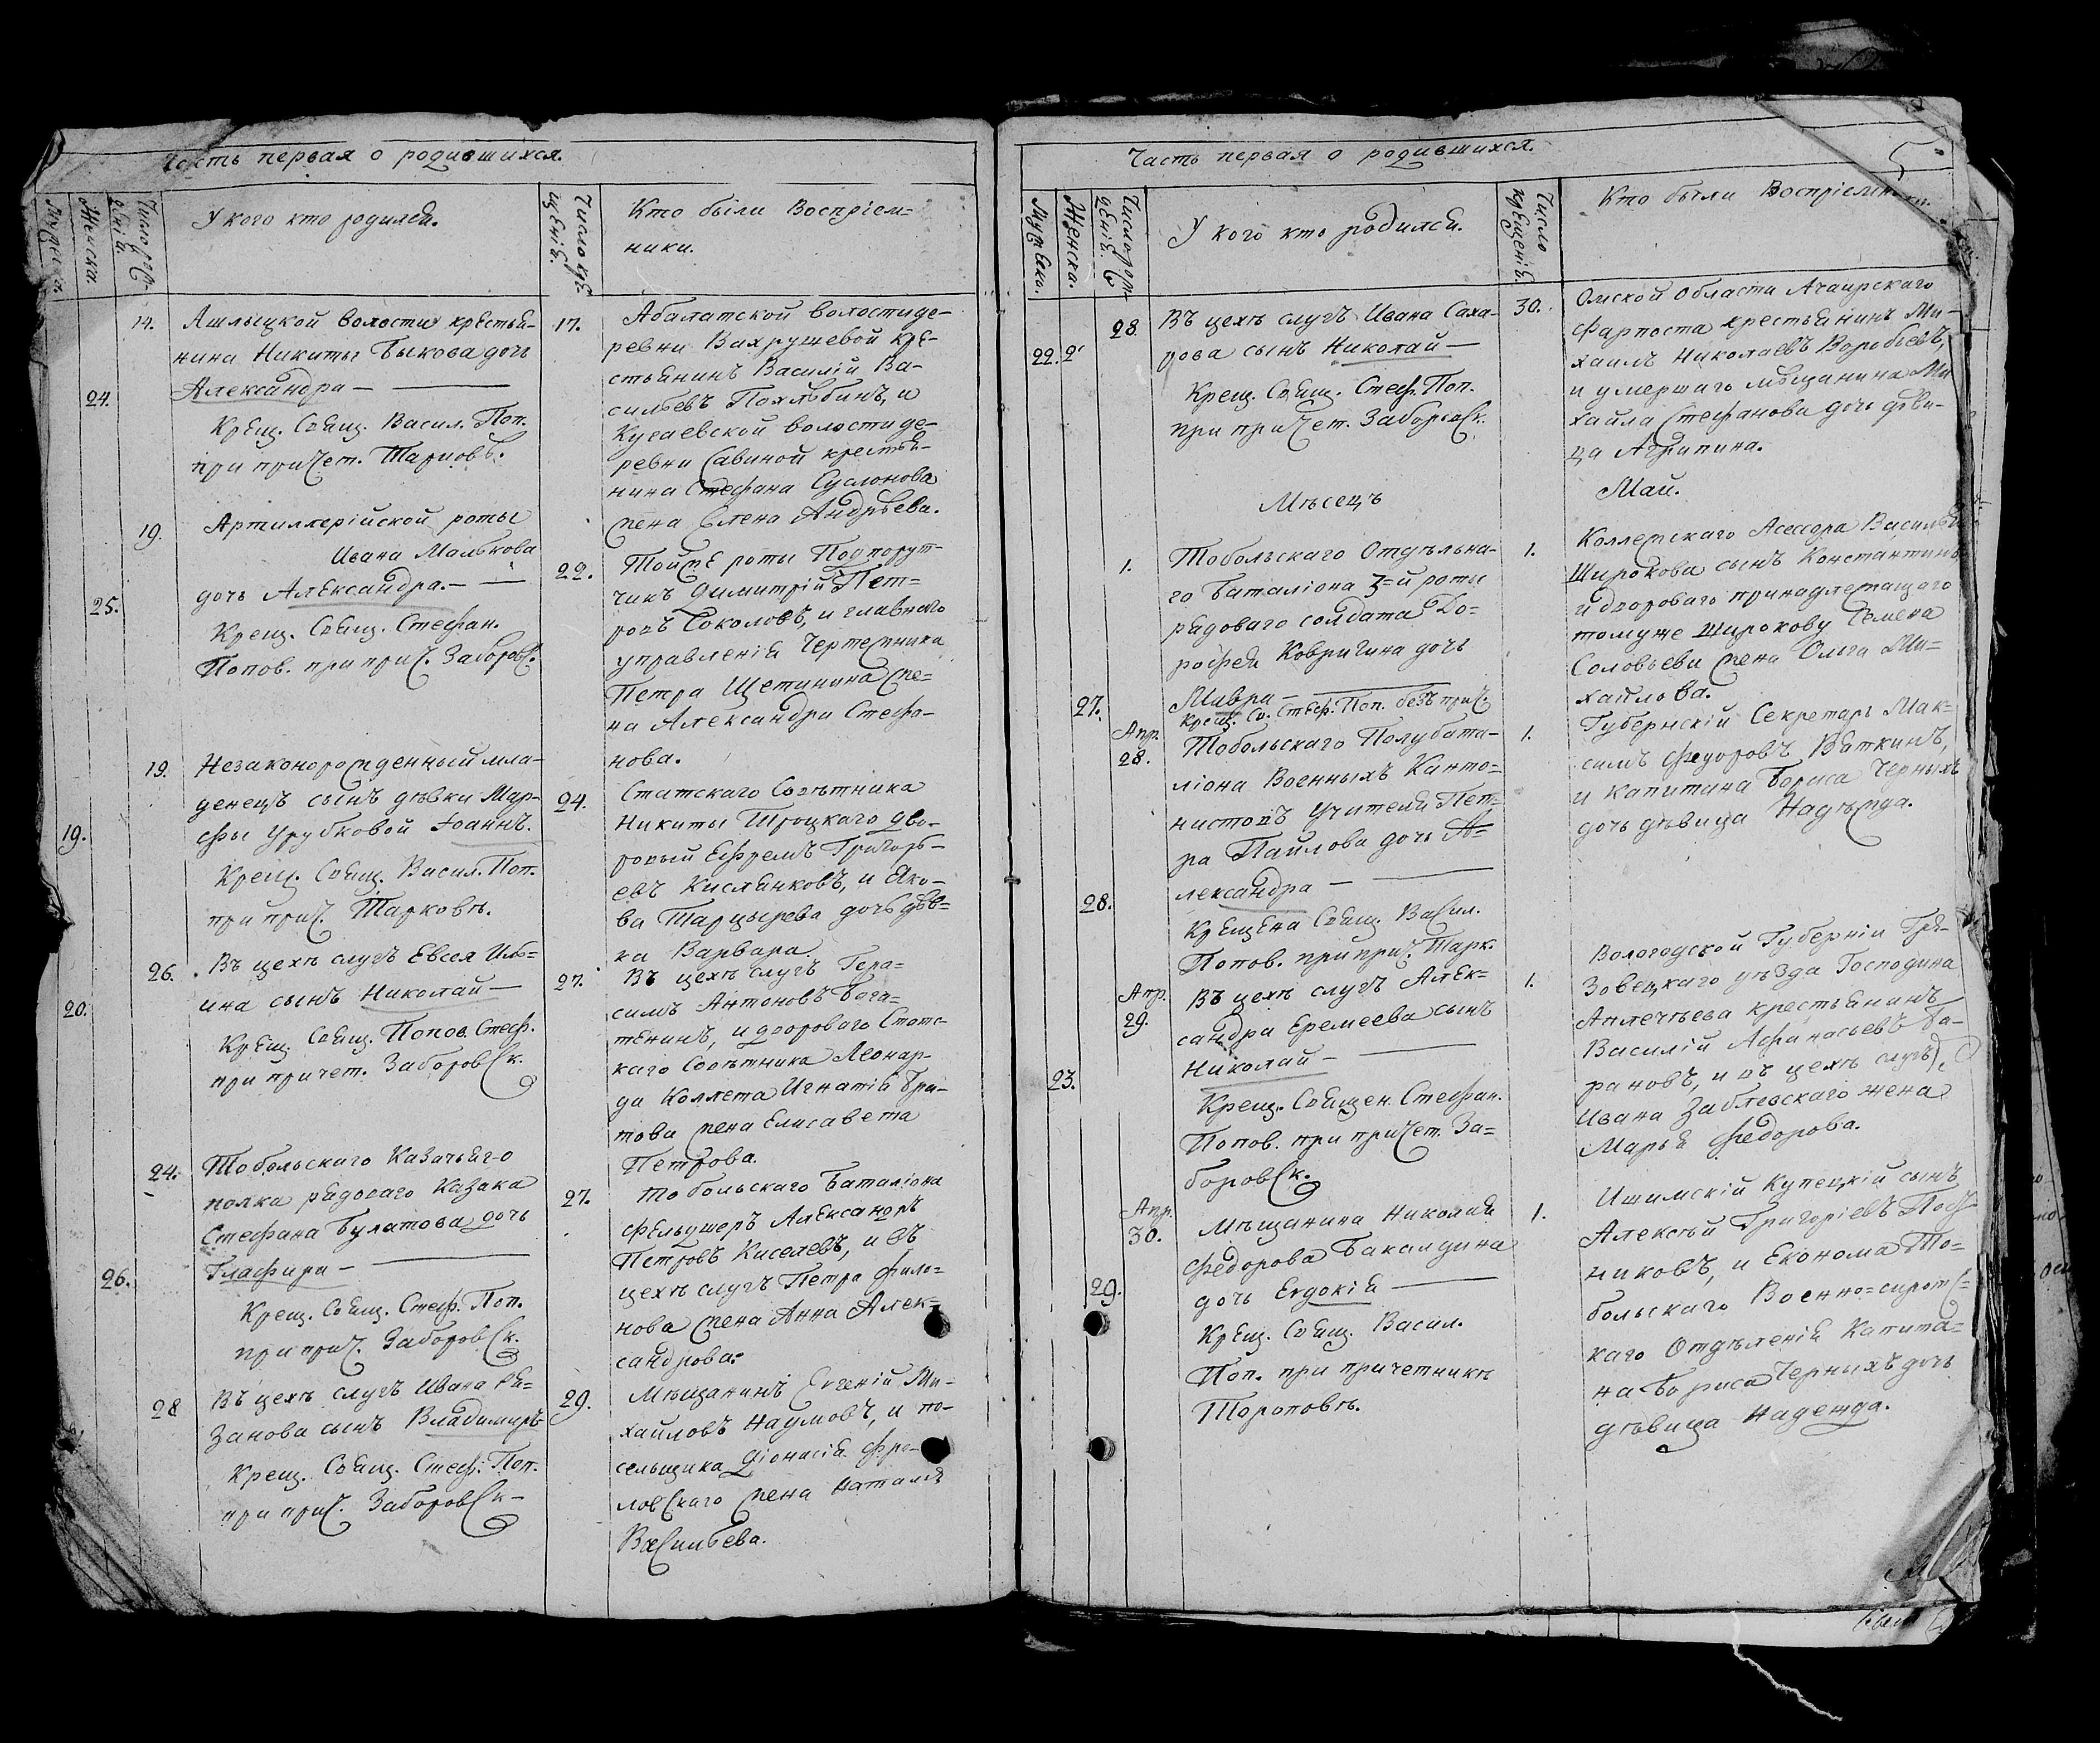 Часть первая о родившихся.
Мужеска.
Женска.
Число рож-
денія.
У кого кто родился.
Число кре-
щенія.
Кто были Воспріем-
ники.
14.
Ашлыцкой волости крестья-
нина Никиты Быкова дочь
24.
Александра —
Крещ. Свящ. Васил. Поп.
при причет.
17.
Абалатской волости де-
ревни Вахрушевой кре-
стьянинъ Василій Ва-
сильевъ Похлѣбинъ, и
Кугаевской волости де-
ревни Савиной крестья-
нина Стефана Суслонова
жена Елена Андрѣева.
19.
Артиллерійской роты
Ивана Малькова
25.
дочь Александра. —
Крещ. Свящ. Стефан.
Попов. при прич. Заборовск.
22.
Тойже роты Подпорут-
чикъ Димитрій Пет-
ровъ Соколовъ, и главнаго
управленія Чертежника
Петра Щетинина же-
на Александра Стефа-
нова.
19.
Незаконорожденный мла-
денецъ сынъ дѣвки Мар-
19.
фы Урубковой Іоаннъ.
Крещ. Свящ. Васил. Поп.
при прич. Тарковѣ.
24.
Статскаго Совѣтника
Никиты Троцкаго дво-
ровый Ефремъ Григорь-
евъ Кисленковъ, и Яко-
ва дочь дѣв-
ка Варвара.
26.
Въ цехѣ слугъ Евсея Иль-
20.
ина сынъ Николай —
Крещ. Свящ. Попов. Стеф.
при причет. Заборовск.
27.
Въ цехѣ слугъ Гера-
симъ Антоновъ Бога-
тенинъ, и двороваго Статс-
каго Совѣтника Леонар-
да Коллета Игнатія Бра-
това жена Елисавета
Петрова.
24.
Тобольскаго Казачьяго
полка рядоваго Казака
Стефана Булатова дочь
26.
Глафира —
Крещ. Свящ. Стеф. Поп.
при прич. Заборовск.
27.
Тобольскаго Баталіона
фельдшеръ Александръ
Петровъ Киселевъ, и въ
цехѣ слугъ Петра Фило-
нова жена Анна Алек-
сандрова.
28
Въ цехѣ слугъ Ивана Ря-
занова сынъ Владимиръ
Крещ. Свящ. Стеф. Поп.
при прич. Заборовск —
29.
Мѣщанинъ Евгеній Ми-
хайловъ Наумовъ, и по-
сельщика Діонисія Фро-
ловскаго жена Наталія
Васильева.
Часть первая о родившихся.
5
Мужеска.
Женска.
Число рож-
денія.
У кого кто родился.
Число
крещенія.
Кто были Воспріемники.
28
Въ цехѣ слугъ Ивана Саха-
22.
рова сынъ Николай —
Крещ. Свящ. Стеф. Поп.
при причет. Заборовск.
30.
Омской области Ачаирскаго
Фарпоста крестьянинъ Ми-
хаилъ Николаевъ Воробьевъ,
и умершаго мѣщанина Ми-
хайла Стефанова дочь дѣви-
ца Агрипина.
Мѣсецъ
Май.
1.
Тобольскаго Отдѣльна-
го Баталіона 3=й роты
рядоваго солдата До-
рофея Ковригина дочь
27.
Мавра —
Крещ. Св. Стеф. Поп. безъ прич.
1.
Коллежскаго Асессора Василья
Широкова сынъ Константинъ,
и двороваго принадлежащаго
томуже Широкову Семена
Соловьева жена Ольга Ми-
хайлова.
Апр.
28.
Тобольскаго Полубата-
ліона Военныхъ Канто-
нистовъ Учителя Пет-
ра Паилова дочь А-
28.
лександра —
Крещена Свящ. Васил.
Попов. при прич. Тарк.
1.
Губернскій Секретарь Мак-
симъ Федоровъ Вяткинъ,
и капитана Бориса Черныхъ
дочь дѣвица Надѣжда.
Апр.
29.
Въ цехѣ слугъ Алек-
сандра Еремеева сынъ
23.
Николай —
Крещ. Священ. Стефан.
Попов. при причет. За-
боровск.
1.
Вологодской Губерніи Гря-
зовецкаго уѣзда Господина
Аплечѣева крестьянинъ
Василій Афанасьевъ Ба-
рановъ, и въ цехѣ слугъ
Ивана Заблевскаго жена
Марья Федорова.
Апр.
30.
Мѣщанина Николая
Федорова Бакалдина
29.
дочь Евдокія —
Крещ. Свящ. Васил.
Поп. при причетникѣ
Тороповѣ.
1.
Ишимскій Купецкій сынъ
Алексѣй Григоріевъ
никовъ, и Економа То-
больскаго Военно=сиротс-
каго Отдѣленія Капита-
на Бориса Черныхъ дочь
дѣвица Надежда.